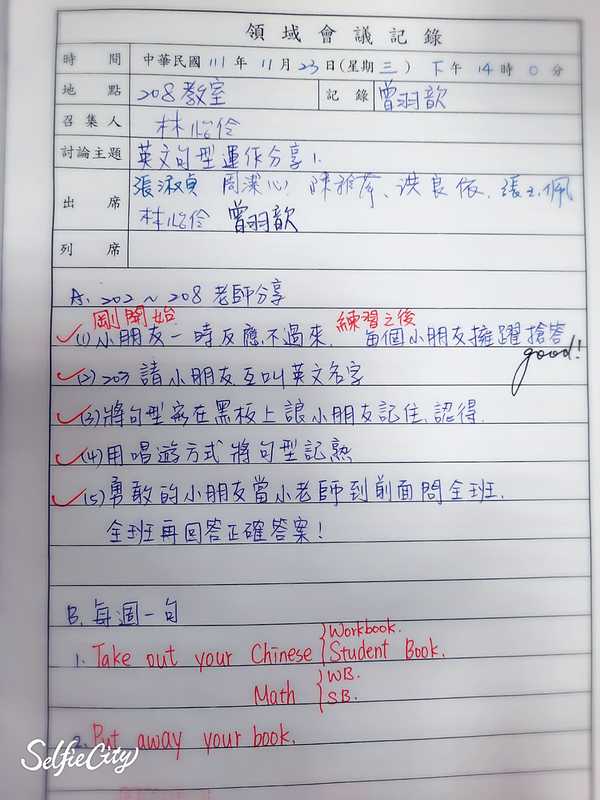 領域會議記錄
時間 中華民國 111 年 11 月 23 日(星期三) 下午 14 時 0 分
地點 208教室 記錄 曾羽歆
召集人 林心伶
討論主題 英文句型運作分享。
張淑貞 周潔心、陳雅 、洪良依、張玉佩
出席 林心伶 曾羽歆
列席
A. 202～208 老師分享
剛開始 練習之後
(1)小朋友一時反應不過來. 每個小朋友擁躍搶答
good!
(2)203 請小朋友互叫英文名字
(3)將句型寫在黑板上讓小朋友記住、認得.
(4)用唱遊方式將句型記熟
(5)勇敢的小朋友當小老師到前面問全班.
全班再回答正確答案!
B. 每週一句
Workbook.
1. Take out your Chinese Student Book.
WB.
Math SB.
2. Put away your book.
SelfieCity